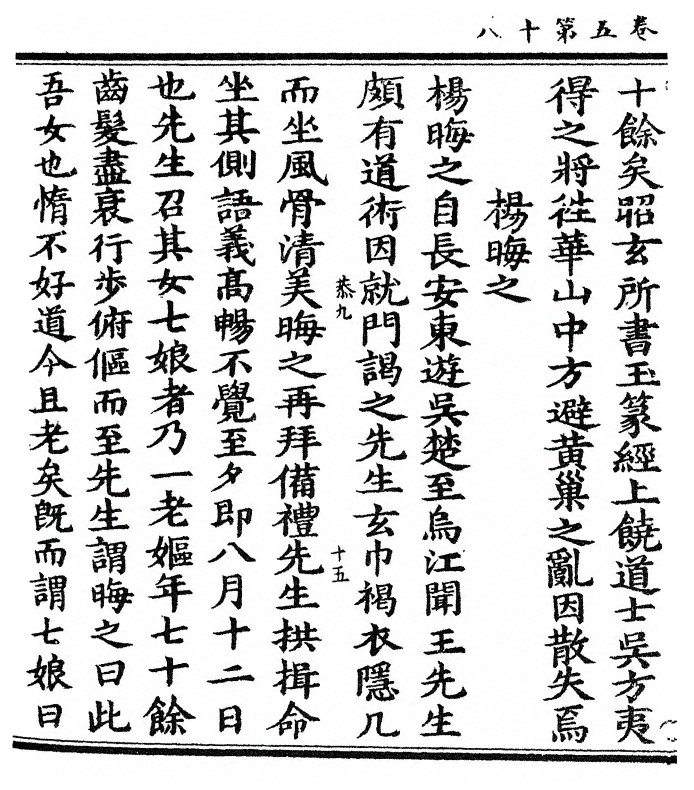 卷五第十八
十餘矣昭玄所書玉篆經上饒道士吳方夷
得之將往華山中方避黃巢之亂因散失焉
楊晦之
楊晦之自長安東遊吳楚至烏江聞王先生
頗有道術因就門謁之先生玄巾褐衣隱几
恭九
十五
而坐風骨清美晦之再拜備禮先生拱揖命
坐其側語義高暢不覺至夕即八月十二日
也先生召其女七娘者乃一老嫗年七十餘
齒髮盡衰行步俯傴而至先生謂晦之曰此
吾女也惰不好道今且老矣既而謂七娘曰